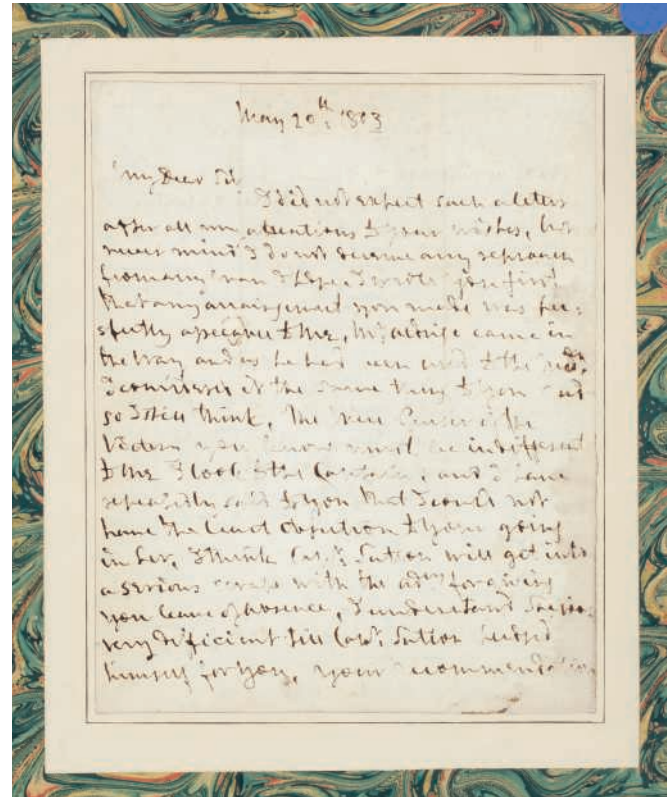 May 20th: 1803
My Dear Sir
I did not expect such a letter
after all my attentions to your wishes, but
never mind I do not deserve any reproach
from any man I hope. I wrote you first
that any arraingement you made was per:
:fectly agreeable to me, came in
the way and as he had been used to the
I considered it the same thing to you and
so I still think, the Purser of the
Victory you know must be indifferent
to me I look to the Captain, and I have
repeatedly said to you that I could not
have the least objection to your going
in her, I think Capt: Sutton will get into
a serious scrape with the adty for giving
you leave of absence, I understand She is
very deficient till Capt: Sutton
himself for you, your